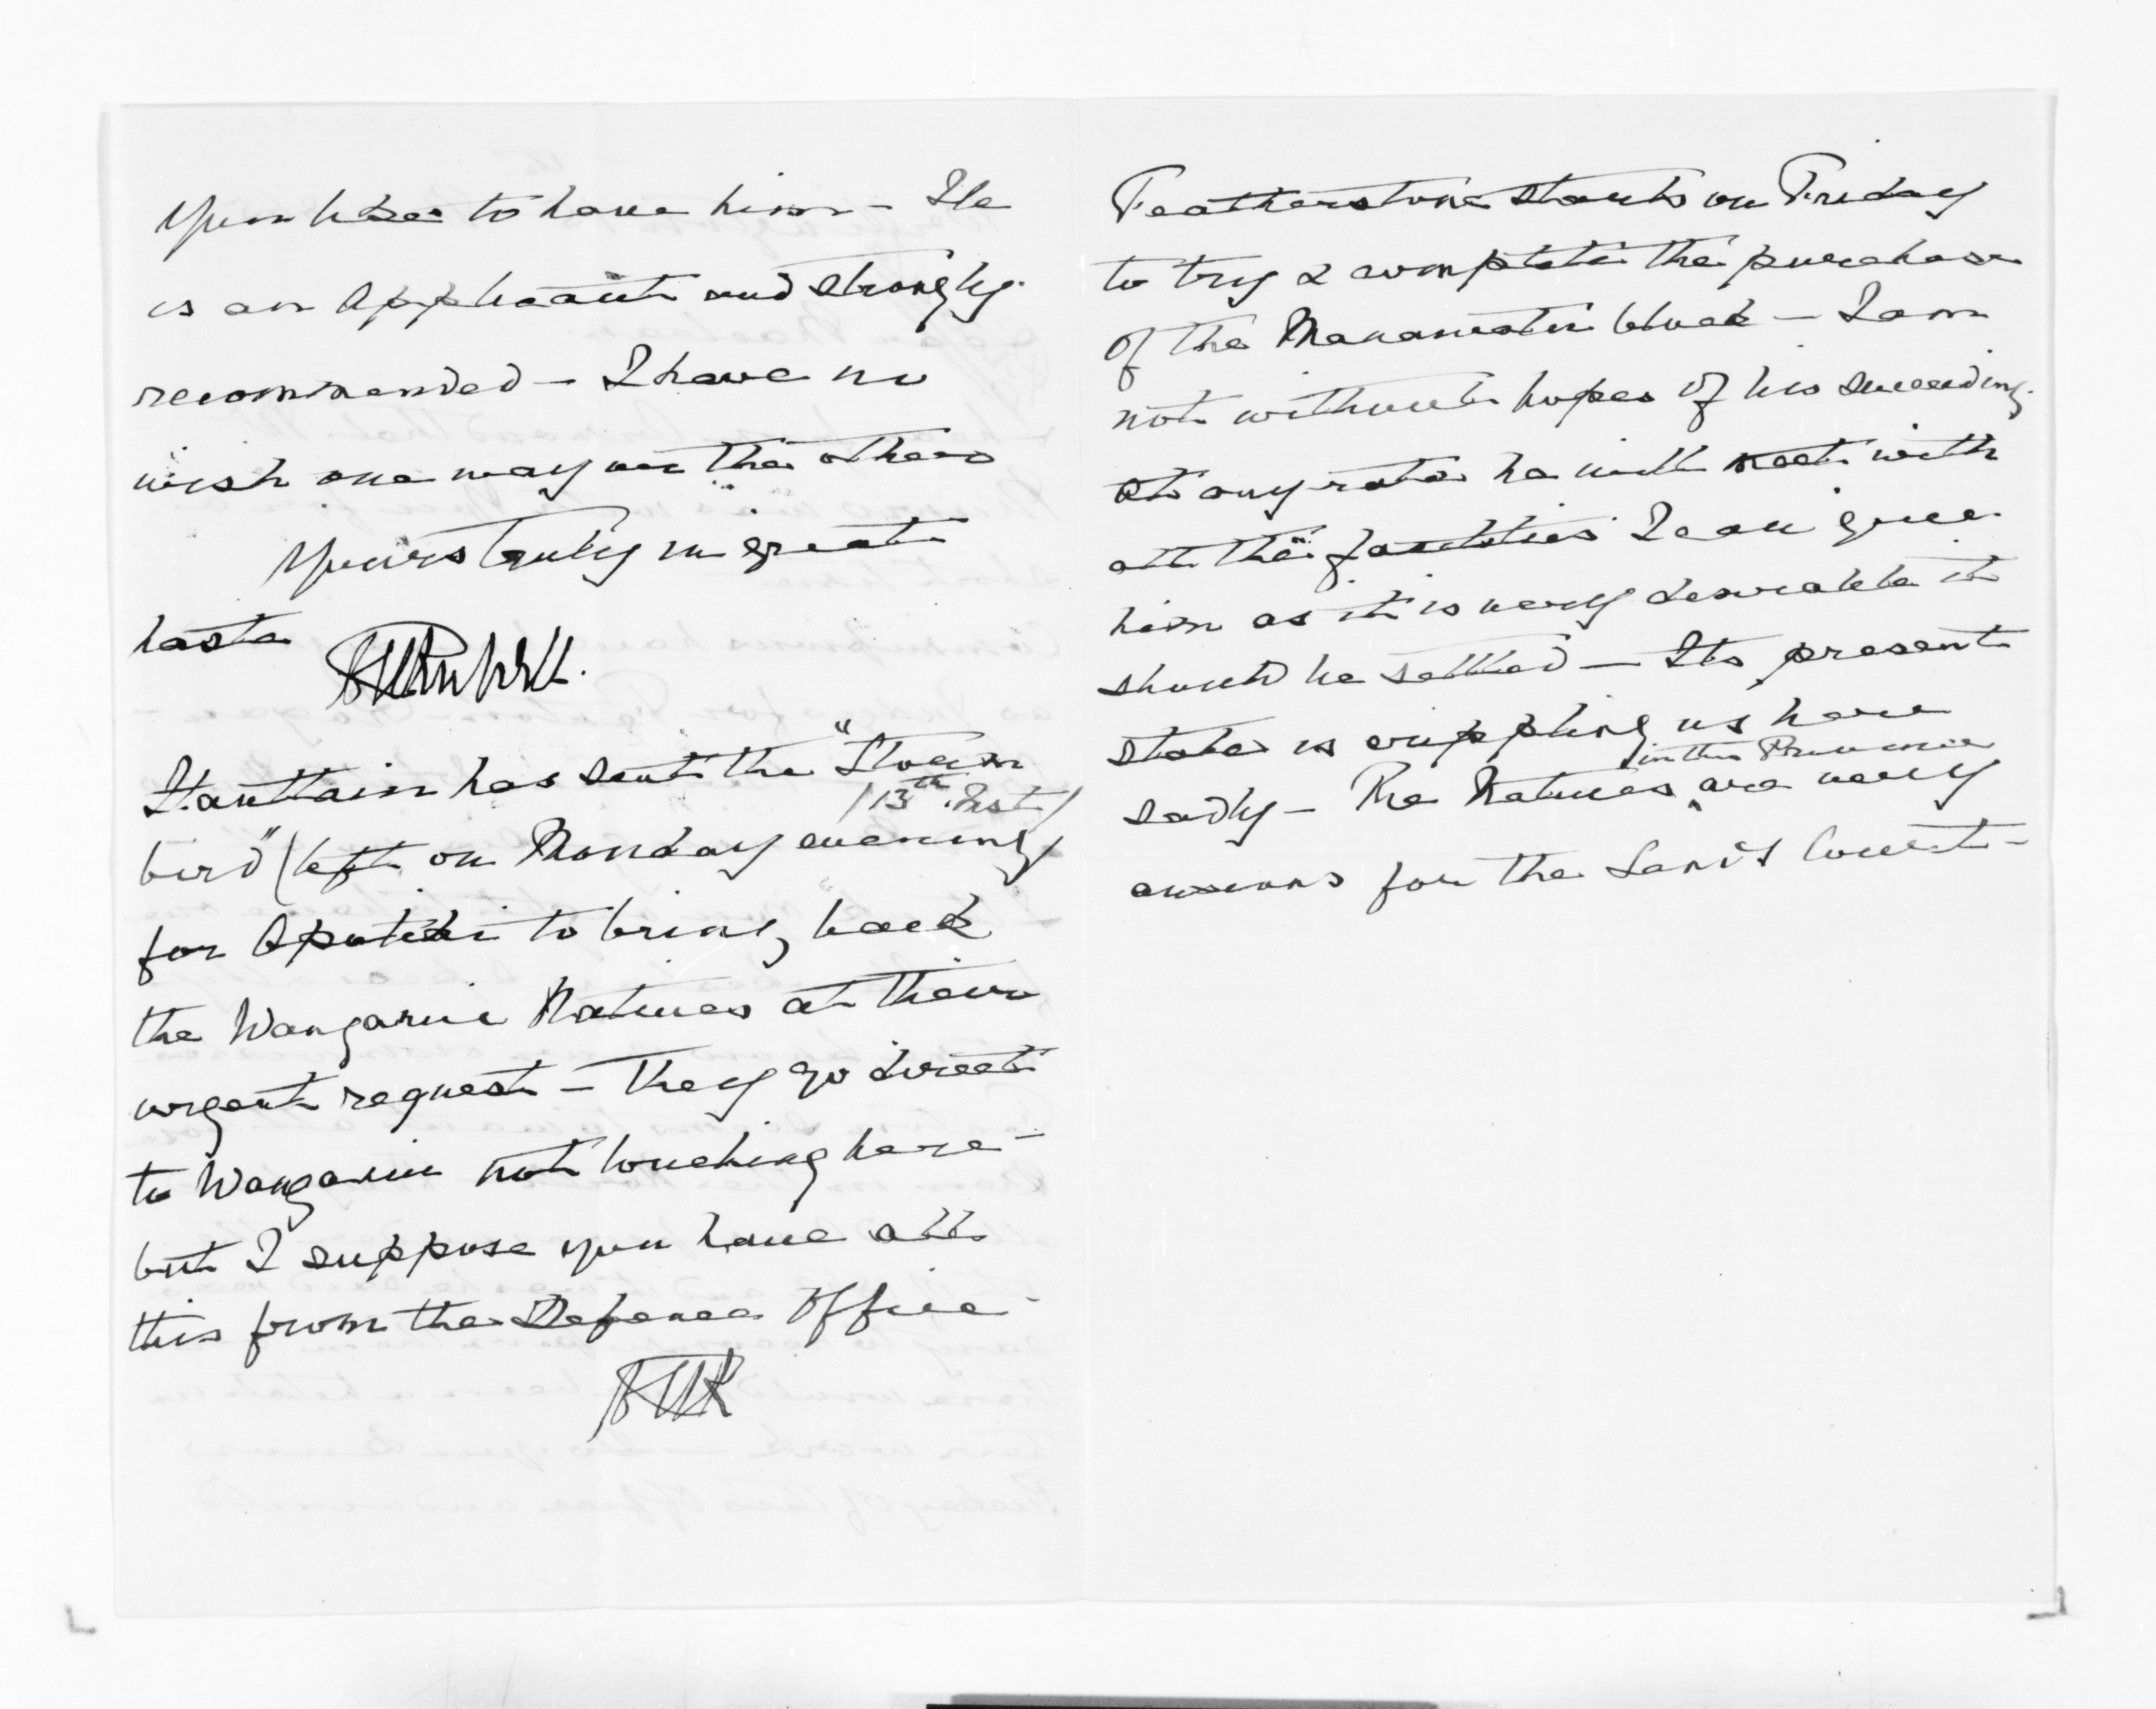 you like to have him - He
is an Applicant and strongly
recommended - I have no
wish one way or the other
Yours truly in great
haste
Haultain has sent the "Storm
bird" (left on Monday evening /13th Inst/
for Opotiki to bring back
the Wanganui Natives at their
urgent request - They go direct
to Wanganui not touching here -
but I suppose you have all
this from the Defence Office -
Featherstone starts on Friday
to try & complete the purchase
of the Manawatu block - I am
not without hopes of his succeeding.
At any rate he will meet with
all the facilities I can give
him as it is very desirable it
should be settled - Its present
state is crippling us here
sadly - The Natives in this Province are very
anxious for the Land's Court -